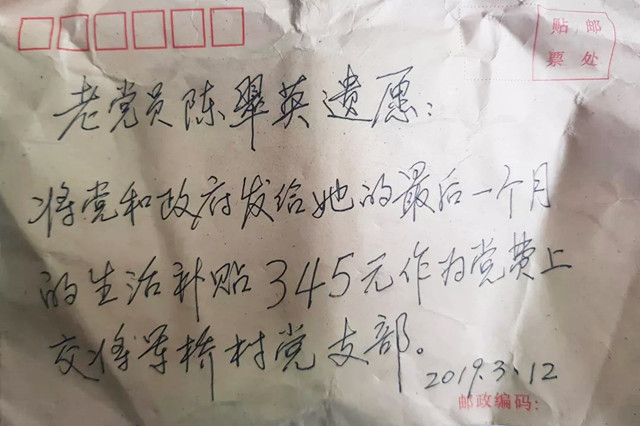 贴 邮
票 处
老党员陈翠英遗愿：
将党和政府发给她的最后一个月
的生活补贴345元作为党费上
交将军桥村党支部。
2019.3.12
邮政编码：